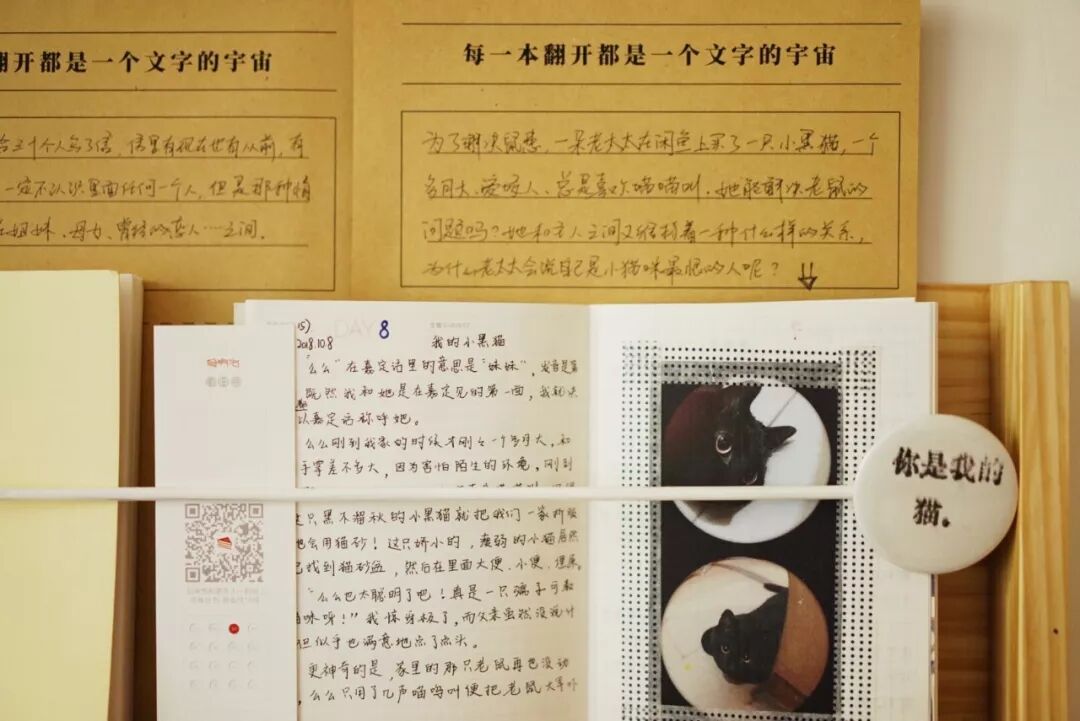 翻开都是一个文字的宇宙
每一本翻开都是一个文字的宇宙
个人写了信，信里有现在也有从前，有
一定不认识里面任何一个人，但是那种情
姐妹、母女、曾经的恋人……之间。
为了解决鼠患，一朵老太太在闲鱼上买了一只小黑猫，一个
多月大、爱吃人、总是喜欢喵喵叫，她能解决老鼠的
问题吗？她和主人之间又维持着一种什么样的关系，
为什么老太太会说自己是小猫咪最恨的人呢？
DAY 8
2018.10.8 我的小黑猫
“么么”在嘉定话里的意思是“妹妹”，
既然我和她是在嘉定见的第一面，我就
以嘉定话称呼她。
么么刚到我家的时候才刚一个多月大，和
手掌差不多大，因为害怕陌生的环境，刚到
这只黑不溜秋的小黑猫就把我们一家
她会用猫砂！这只娇小的，瘦弱的小猫居然
己找到猫砂盆，然后在里面大便、小便、埋屎。
“么么也太聪明了吧！真是一只孺子可教
猫咪呀！”我惊讶极了，而父亲虽然没说什
但似乎也满意地点了点头。
更神奇的是，家里的那只老鼠再也没动
，么么只用了几声喵呜叫便把老鼠
你是我的
猫。